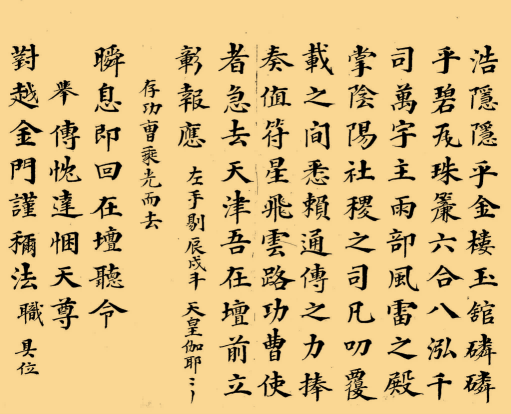 浩隱隱乎金樓玉舘磷磷
乎碧瓦珠簾六合八泓千
司萬字主雨部風雷之殿
掌陰陽社稷之司凡叨覆
載之間悉賴通傳之力捧
奏值符星飛雲路功曹使
者急去天津吾在壇前立
彰報應 左手剔辰戌斗 天皇伽耶
存功曹乘光而去
瞬息即回在壇聽令
舉傳忱達悃天尊
對越金門謹穪法 職 具位